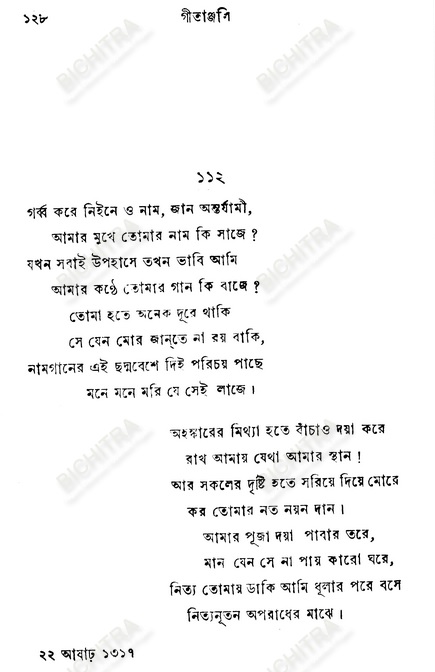 ১২৮
গীতাঞ্জলি
১১২
গর্ব্ব করে নিইনে ও নাম, জান অন্তর্যামী,
আমার মুখে তোমার নাম কি সাজে ?
যখন সবাই উপহাসে তখন ভাবি আমি
আমার কণ্ঠে তোমার গান কি বাজে ?
তোমা হতে অনেক দূরে থাকি
সে যেন মোর জান্‌তে না রয় বাকি,
নামগানের এই ছদ্মবেশে দিই পরিচয় পাছে
মনে মনে মরি যে সেই লাজে ।
অহঙ্কারের মিথ্যা হতে বাঁচাও দয়া করে
রাখ আমায় যেথা আমার স্থান !
আর সকলের দৃষ্টি হতে সরিয়ে দিয়ে মোরে
কর তোমার নত নয়ন দান ।
আমার পূজা দয়া পাবার তরে,
মান যেন সে না পায় কারো ঘরে,
নিত্য তোমায় ডাকি আমি ধূলার পরে বসে
নিত্যনূতন অপরাধের মাঝে ।
২২ আষাঢ় ১৩১৭
BICHITRA
BICHITRA
BICHITRA
BICHITRA
BICHITRA
BICHITRA
BICHITRA
BICHITRA